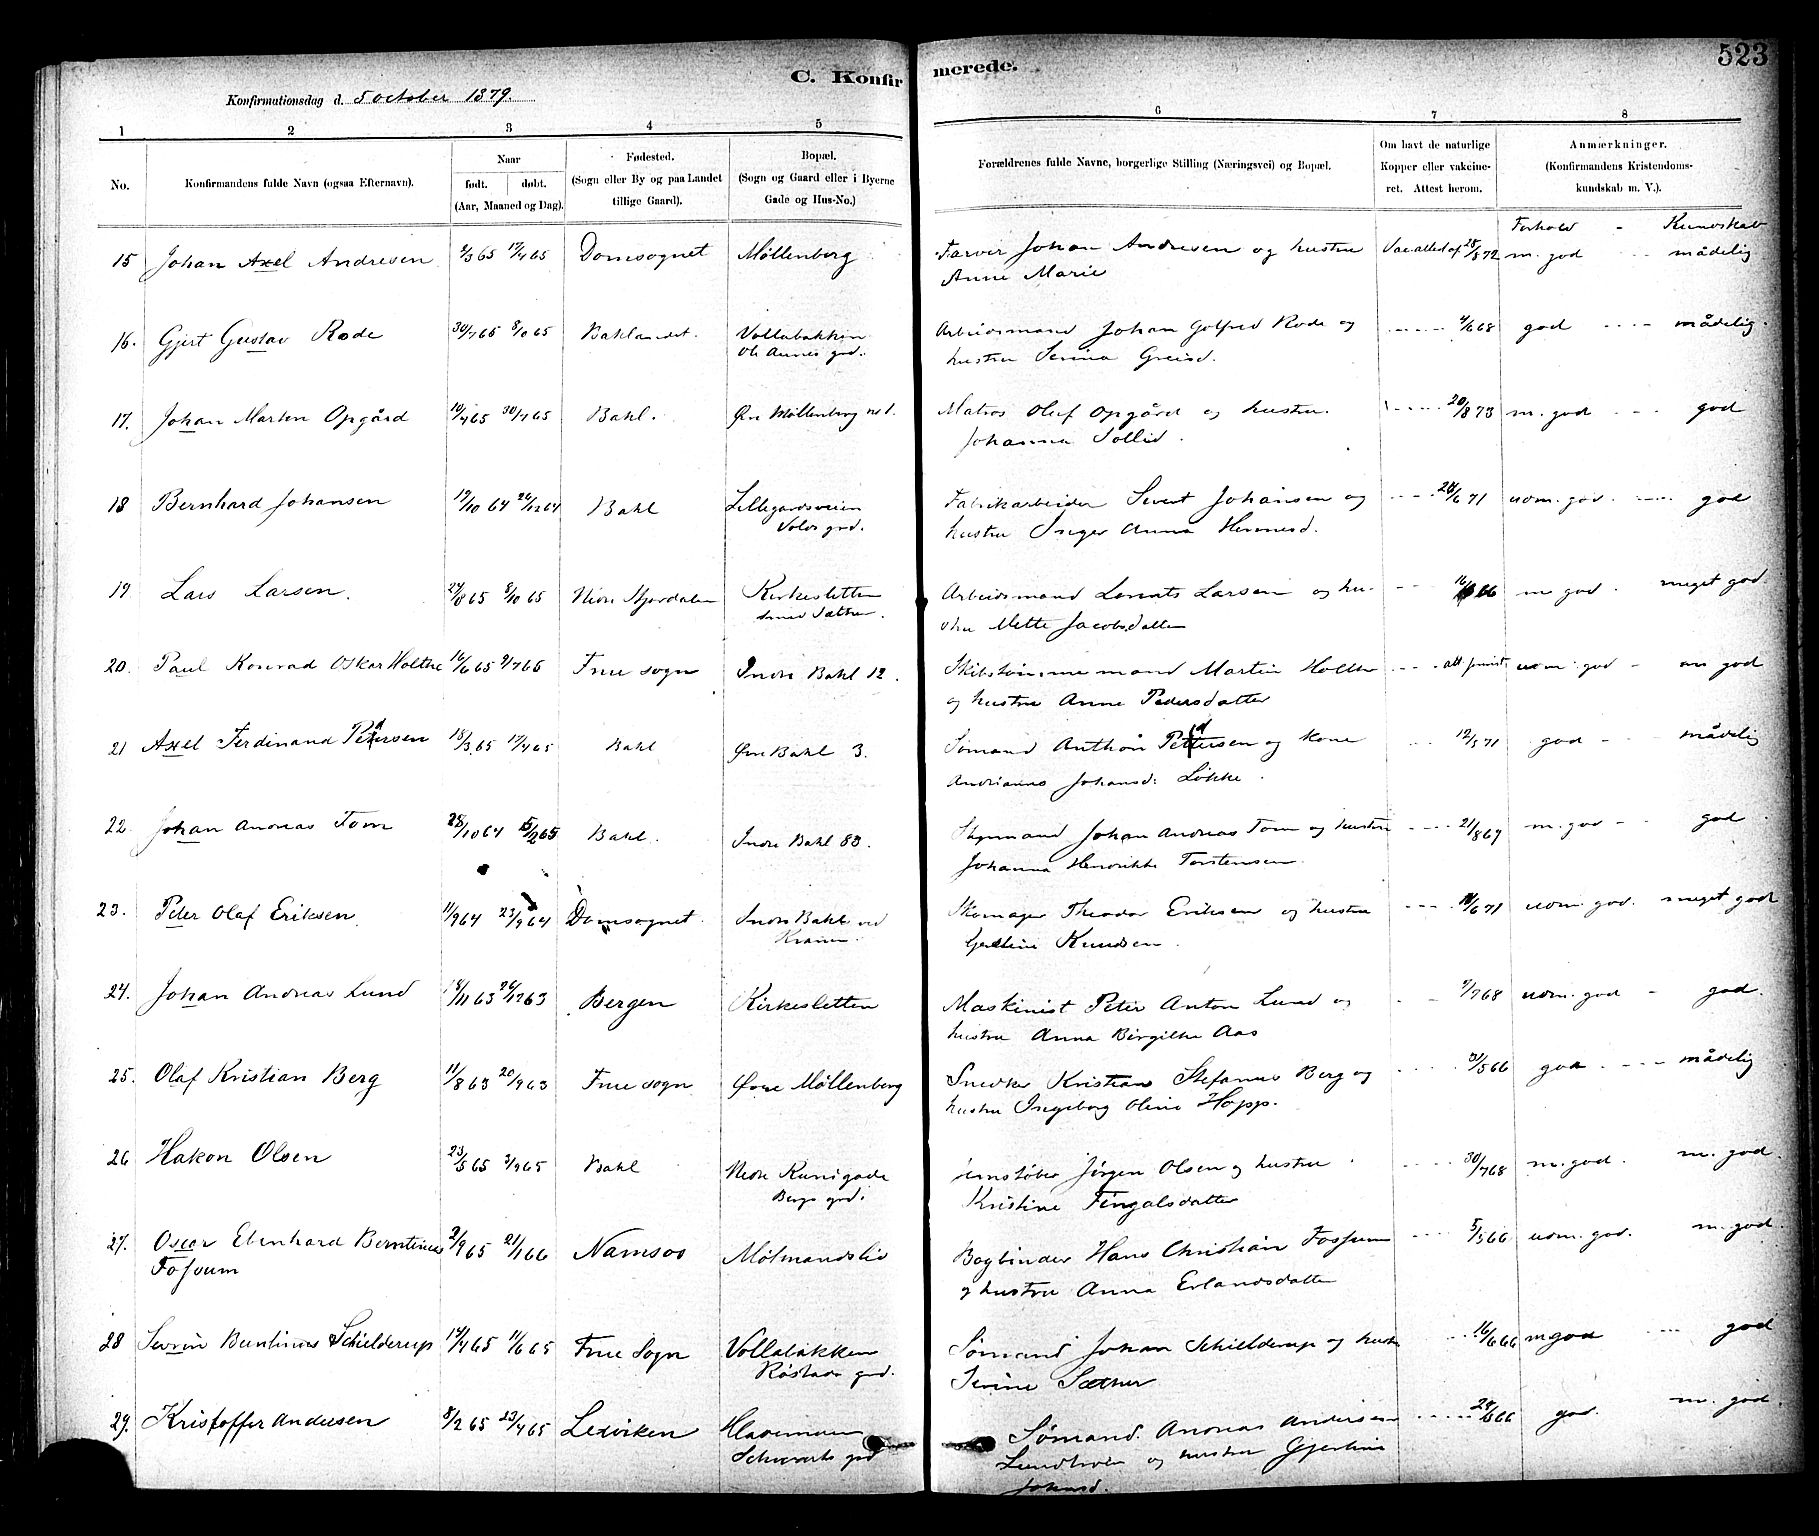 523
C. Konfirmerede.
Konfirmationsdag d. 5 october 1879.
1 2 3 4 5 6 7 8
No.
Konfirmandens fulde Navn (ogsaa Efternavn).
Naar
født. døbt.
(Aar, Maaned og Dag).
Fødested.
(Sogn eller By og paa Landet
tillige Gaard).
Bopæl.
(Sogn og Gaard eller i Byerne
Gade og Hus-No.)
Forældrenes fulde Navne, borgerlige Stilling (Næringsvei) og Bopæl.
Om havt de naturlige
Kopper eller vakcine-
ret. Attest herom.
Anmærkninger.
(Konfirmandens Kristendoms-
kundskab m. V.).
Forhold - Kundskab
15 Johan Axel Andresen 2/3 65 17/4 65 Domsognet Møllenberg Farver Johan Andresen og hustru Vac.attest af 28/8 72 m. god mådelig
Anne Marie
16. Gjert Gustav Rode 30/7 65 8/10 65 Baklandet. Vollabakken Arbeidsmand Johan Golfred Rode og 4/6 68 god mådelig.
grd. hustru Serina
17. Johan Marten Opgård 10/4 65 30/7 65 Bakl. Øvre Møllenberg no 1. Matros Oluf Opgård og hustru 20/8 73 m. god god
Johanna Sollid.
18 Bernhard Johansen 19/10 64 26/12 64 Bakl Lillegardsveien Fabrikarbeider Sivert Johansen og 28/6 71 udm. god. god
grd. hustru Inger Anna
19. Lars Larsen. 24/8 65 8/10 65 Nedre Stjørdalen Kirkesletten Arbeidsmand Lorents Larsen og hu- 66 m god. meget god.
stru Mette Jacobsdatter
20. Paul Konrad Oskar Holthe 16/6 65 9/7 65 Frue sogn Indre Bakl 12. Skibstømmermand Martin Holthe udm. god - m god
og hustru Anne Pedersdatter
21 Axel Ferdinand Petersen 18/3 65 17/4 65 Bakl Øvre Bakl 3. Sømand Anthon Pettersen og kone 12/5 71 god mådelig
Johansd: Løkke.
22. Johan Andreas Tom 28/10 64 5/2 65 Bakl. Indre Bakl 83. Styrmand Johan Andreas Tom og hustru 21/8 69 m. god god
Johanna Henrikke Torstensen.
23. Peter Olaf Eriksen 11/9 64 23/9 64 Domsognet. Indre Bakl ved Skomager Theodor Eriksen og hustru 6 71 udm. god. meget god
Kranen. Knudsen.
24. Johan Andreas Lund 18/11 63 26/12 63 Bergen Kirkesletten Maskinist Peter Anton Lund og 9/7 68 udm. god - god.
hustru Anna Birgithe Aas
25. Olaf Kristian Berg 11/8 63 20/9 63 Frue sogn Øvre Møllenberg Snedker Kristian Stefanus Berg og 31/5 66 god mådelig
hustru Ingeborg Oline Hopp.
26 Hakon Olsen 23/5 65 3/9 65 Bakl Nedre Kunigade Jernstøber Jørgen Olsen og hustru 30/7 68 m. god. m. god.
Bergs grd. Kristine Fingalsdatter
27. Oscar Ebenhard Berntinus 2/9 65 21/1 66 Namsos Møllmandslid Bogbinder Hans Christian Fossum 5/5 66 udm. god. m. god.
Fossum og hustru Anna Erlandsdatter
28 Sevrin Berntinus Schielderup 14/4 65 11/6 65 Frue Sogn Vollabakken Sømand Johan Schielderup og hustru 16/6 66 m god god
Røstads grd. Serine Sæther
29. Kristoffer Andersen 8/2 65 23/4 65 Lexviken Sømand. Andreas Andersen 66 god. m. god.
grd og hustru Gjertine
Johnsd.